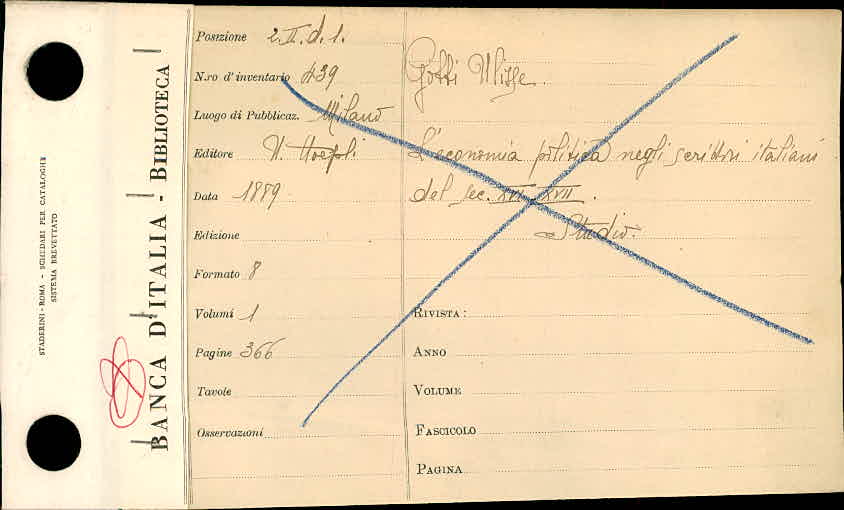 STADERINI - ROMA - SCHEDARI PER CATALOGHI
SISTEMA BREVETTATO
BANCA D'ITALIA - BIBLIOTECA
Posizione 2.II.d.1.
N.ro d'inventario 439
Luogo di Pubblicaz. Milano
Editore U. Hoepli
Data 1889
Edizione
Formato 8
Volumi 1
Pagine 366
Tavole
Osservazioni
Gobbi Ulisse.
L'economia politica negli scrittori italiani
del sec. XVI-XVII.
Studio.
RIVISTA:
ANNO
VOLUME
FASCICOLO
PAGINA